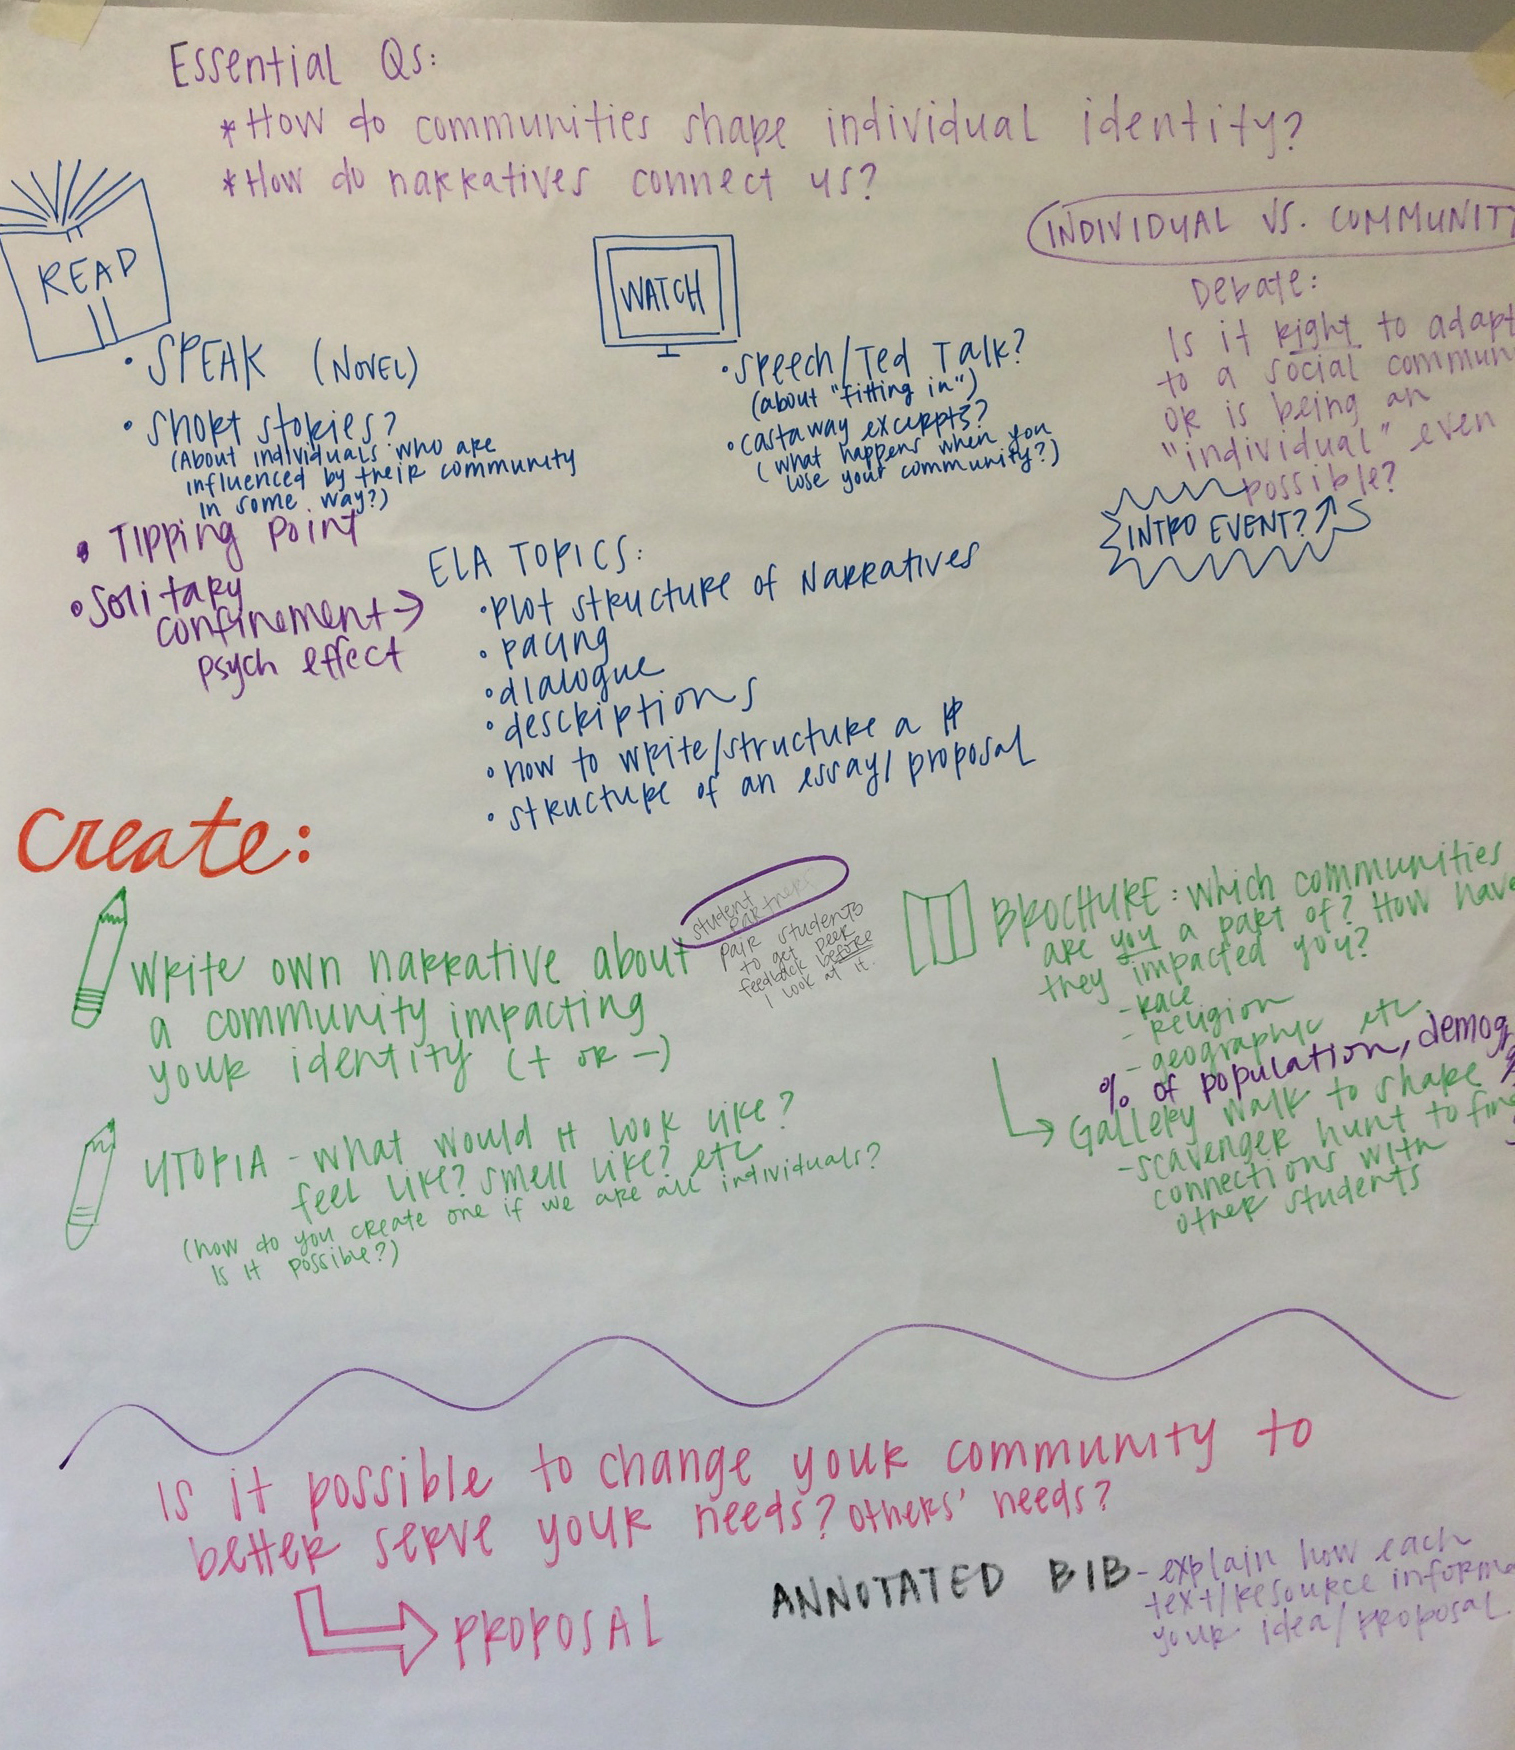 Essential Qs:
*How do communities shape individual identity?
*How do narratives connect us?
READ
• SPEAK (NOVEL)
• short stories?
(About individuals who are
influenced by their community
in some way?)
• Tipping Point
• Solitary
confinement →
psych effect
WATCH
• speech/Ted Talk?
(about "fitting in")
• castaway excerpts?
(what happens when you
lose your community?)
INDIVIDUAL VS. COMMUNITY
Debate:
Is it right to adapt
to a social commun
or is being an
"individual" even
possible?
INTRO EVENT?
ELA TOPICS:
• plot structure of Narratives
• pacing
• dialogue
• descriptions
• how to write/structure a ¶
• structure of an essay/proposal
Create:
write own narrative about
a community impacting
your identity (+ or -)
student
partners
pair students
to get peer
feedback before
I look at it.
UTOPIA - what would it look like?
feel like? smell like? etc
(how do you create one if we are all individuals?
Is it possible?)
BROCHURE: which communities
are you a part of? How have
they impacted you?
- race
- religion
- geographic etc
% of population, demog
→ Gallery walk to shape
- scavenger hunt to find
connections with
other students
Is it possible to change your community to
better serve your needs? others' needs?
PROPOSAL
ANNOTATED BIB - explain how each
text/resource informs
your idea/proposal.